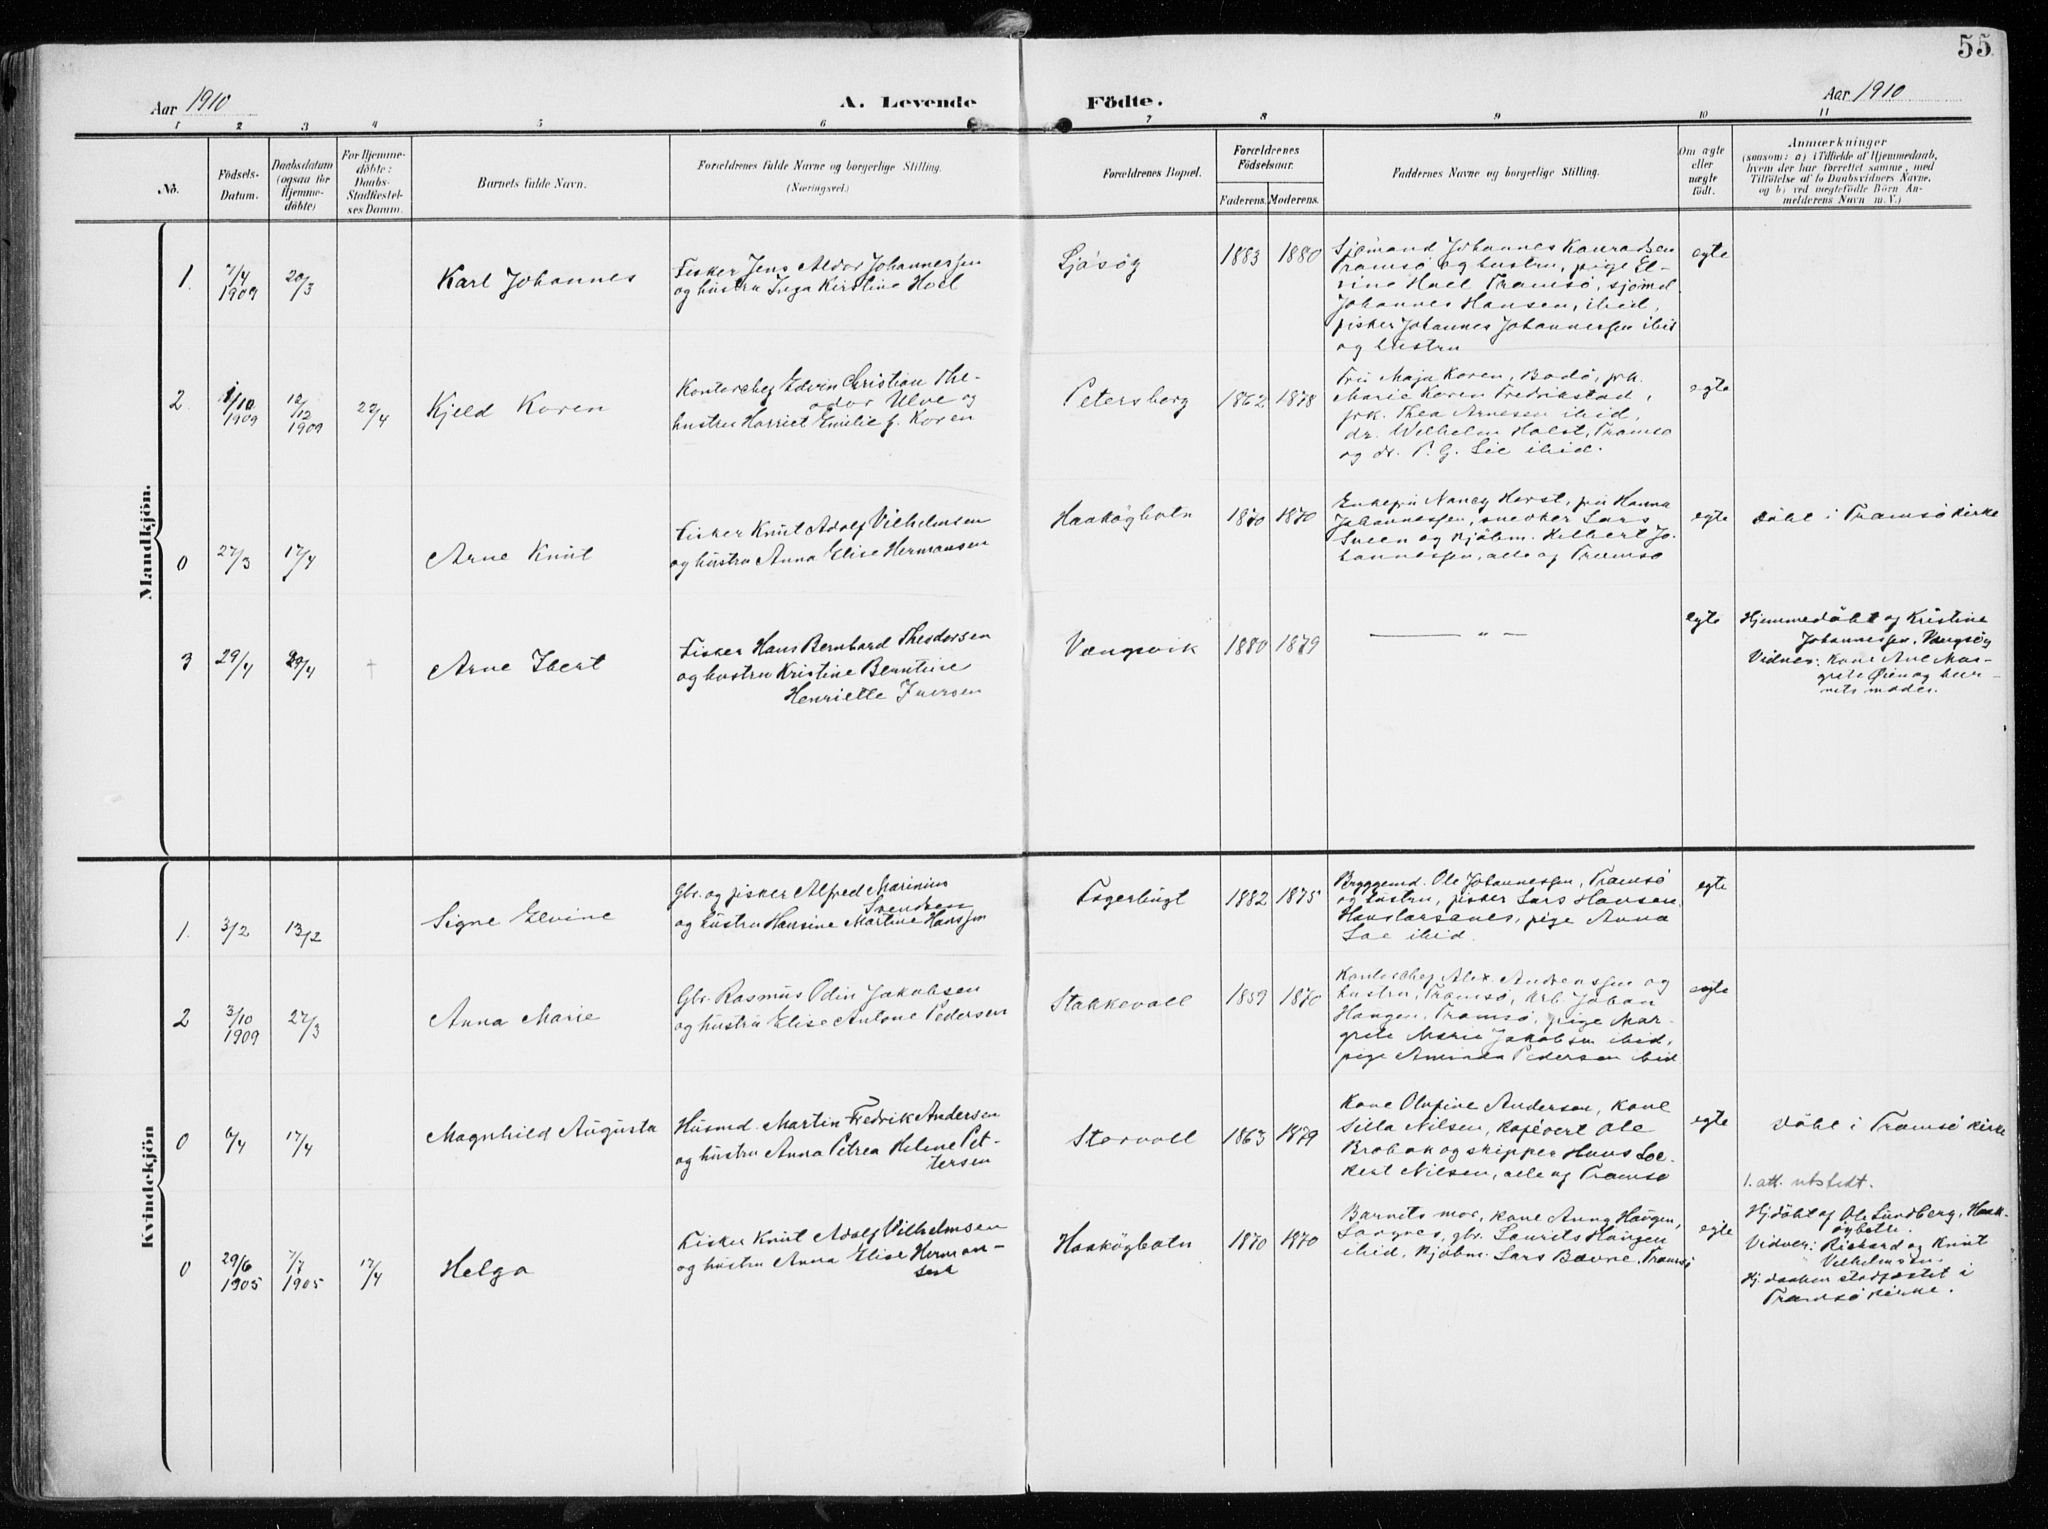 55
Aar 1910
A. Levende
Födte.
Aar 1910
1 2 3 4 5 6 7 8 9 10 11
No.
Födsels-
Datum.
Daabsdatum
(ogsaa for
Hjemme-
döbte)
For Hjemme-
döbte:
Daabs-
Stadfæstel-
ses Datum.
Barnets fulde Navn.
Forældrenes fulde Navne og borgerlige Stilling.
(Næringsvei.)
Forældrenes Bopæl.
Forældrenes
Födselsaar.
Faderens. Moderens.
Faddernes Navne og borgerlige Stilling.
Om ægte
eller
uægte
födt.
Anmærkninger
(saasom: a) i Tilfælde af Hjemmedaab,
hvem der har forrettet samme, med
Tilföielse af to Daabsvidners Navne,
og b) ved uægtefödte Börn An-
melderens Navn m. V.)
Mandkjön.
1. 7/4
1909
20/3
Karl Johannes
Fisker Jens Aldor Johannessen
og hustru Inga Kirstine Hoel
1883 1880
Sjømand Johannes Konradsen
Tromsø og hustru, pige El-
vine Hoel Tromsø, sjømd.
Johannes Hansen, ibid,
fisker Johannes Johannessen ibid
og hustru
egte
2. 1/10
1909
12/12
1909
22/4
Kjeld Koren
Kontorchef Edvin Christian The-
odor Ulve og
hustru Harriet Emilie f. Koren
Petersborg
1862 1878
Fru Maja Koren, Bodø, frk.
Marie Koren Fredrikstad,
frk. Thea Arnesen ibid,
dr. Wilhelm Holst, Tromsø
og dr. P. G. Lie ibid.
egte
0 27/3 17/4
Arne Knut
Fisker Knut Adolf Vilhelmsen
og hustru Anna Elise Hermansen
Haakøgbotn
1870 1870
Enkefru Nancy Horst, fru Hanna
Johannessen, snedker Lars
Sveen og kjøbm. Hilbert Jo-
hannessen, alle af Tromsø
egte
Døbt i Tromsø kirke
3 29/4 29/4
Arne Ibert
Fisker Hans Bernhard Theodorsen
og hustru Kristine Berntine
Henriette Iversen
Vængsvik
1880 1879
— " —
egte
Hjemmedøbt af Kristine
Johannessen, Vængsøg
Vidner: Kone Ane Mar-
grete Øien og bar-
nets moder.
Kvindekjön
1. 3/2 13/2
Signe Elvine
Gbr. og fisker Alfred Marinius
Svendsen
og hustru Hansine Martine Hanssen
Fagerbugt
1882 1875
Bryggemd. Ole Johannessen, Tromsø
og hustru, fisker Lars Hansen,
Hanslarsanes, pige Anna
Loe ibid.
egte
2 3/10
1909
27/3
Anna Marie
Gbr. Rasmus Odin Jakobsen
og hustru Elise Antone Pedersen
Stakkevoll
1859 1870
Kontorchef Alex. Andreassen og
hustru, Tromsø, arb. Johan
Haugen, Tromsø, pige Mar-
grete Marie Jakobsen ibid,
pige Aminda Pedersen ibid
egte
0 6/4 17/4
Magnhild Augusta
Husmd. Martin Fredrik Andersen
og hustru Anna Petrea Helene Pet-
tersen
Storvoll
1863 1879
Kone Olufine Andersen, kone
Silla Nilsen, kopévert Ole
Brobak og skipper Hans Loe-
kert Nilsen, alle af Tromsø
egte
Døbt i Tromsø kirke
1. att. utstedt.
0 29/6
1905
7/7
1905
17/4
Helga
Fisker Knut Adolf Vilhelmsen
og hustru Anna Elise Herman-
sen
Haakøgbotn
1870 1870
Barnets mor, kone Anna Haugen,
Langnes, gbr. Laurits Haugen
ibid, kjøbm. Lars Bævre, Tromsø
egte
Hjdøbt af Ole Lundberg, Haak-
øgbotn.
Vidner: Rikard og Knut
Vilhelmsen.
Hj.daaben stadfæstet i
Tromsø kirke.